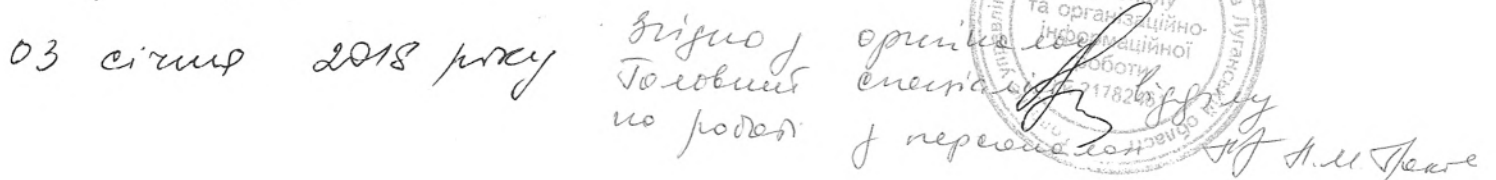 03 січня 2018 року
Згідно з оригіналом
Головний спеціаліст відділу
по роботі з персоналом Н.М.
та організаційно-
інформаційної
роботи
Луганській області